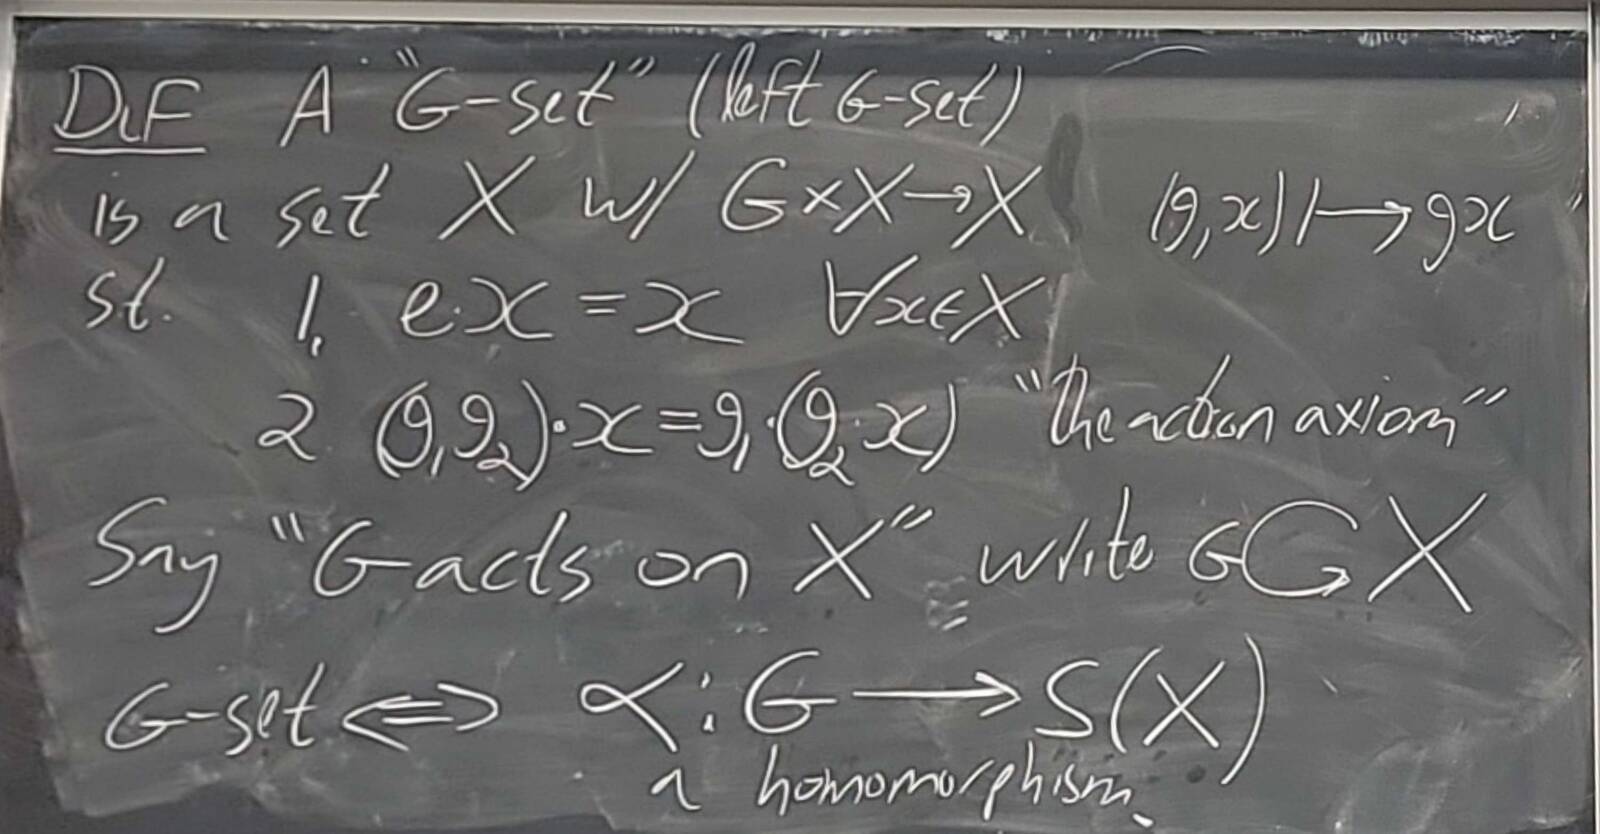 DEF A "G-set" (left G-set)
is a set X w/ G×X→X (g,x)↦gx
st. 1. e·x=x ∀x∈X
2 (g₁g₂)·x=g₁·(g₂·x) "the action axiom"
Say "G acts on X" write G⟳X
G-set ⟺ α:G⟶S(X)
a homomorphism.